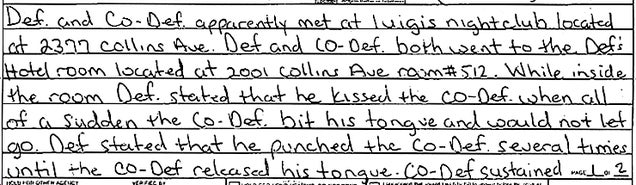 Def. and Co-Def. apparently met at Luigis nightclub located
at 2377 Collins Ave. Def and Co-Def. both went to the Def's
Hotel room located at 2001 Collins Ave room #512. While inside
the room Def. stated that he kissed the Co-Def. when all
of a sudden the Co-Def. bit his tongue and would not let
go. Def stated that he punched the Co-Def. several times
until the Co-Def released his tongue. Co-Def sustained PAGE 1 OF 2
HOLD FOR OTHER AGENCY VERIFIED BY